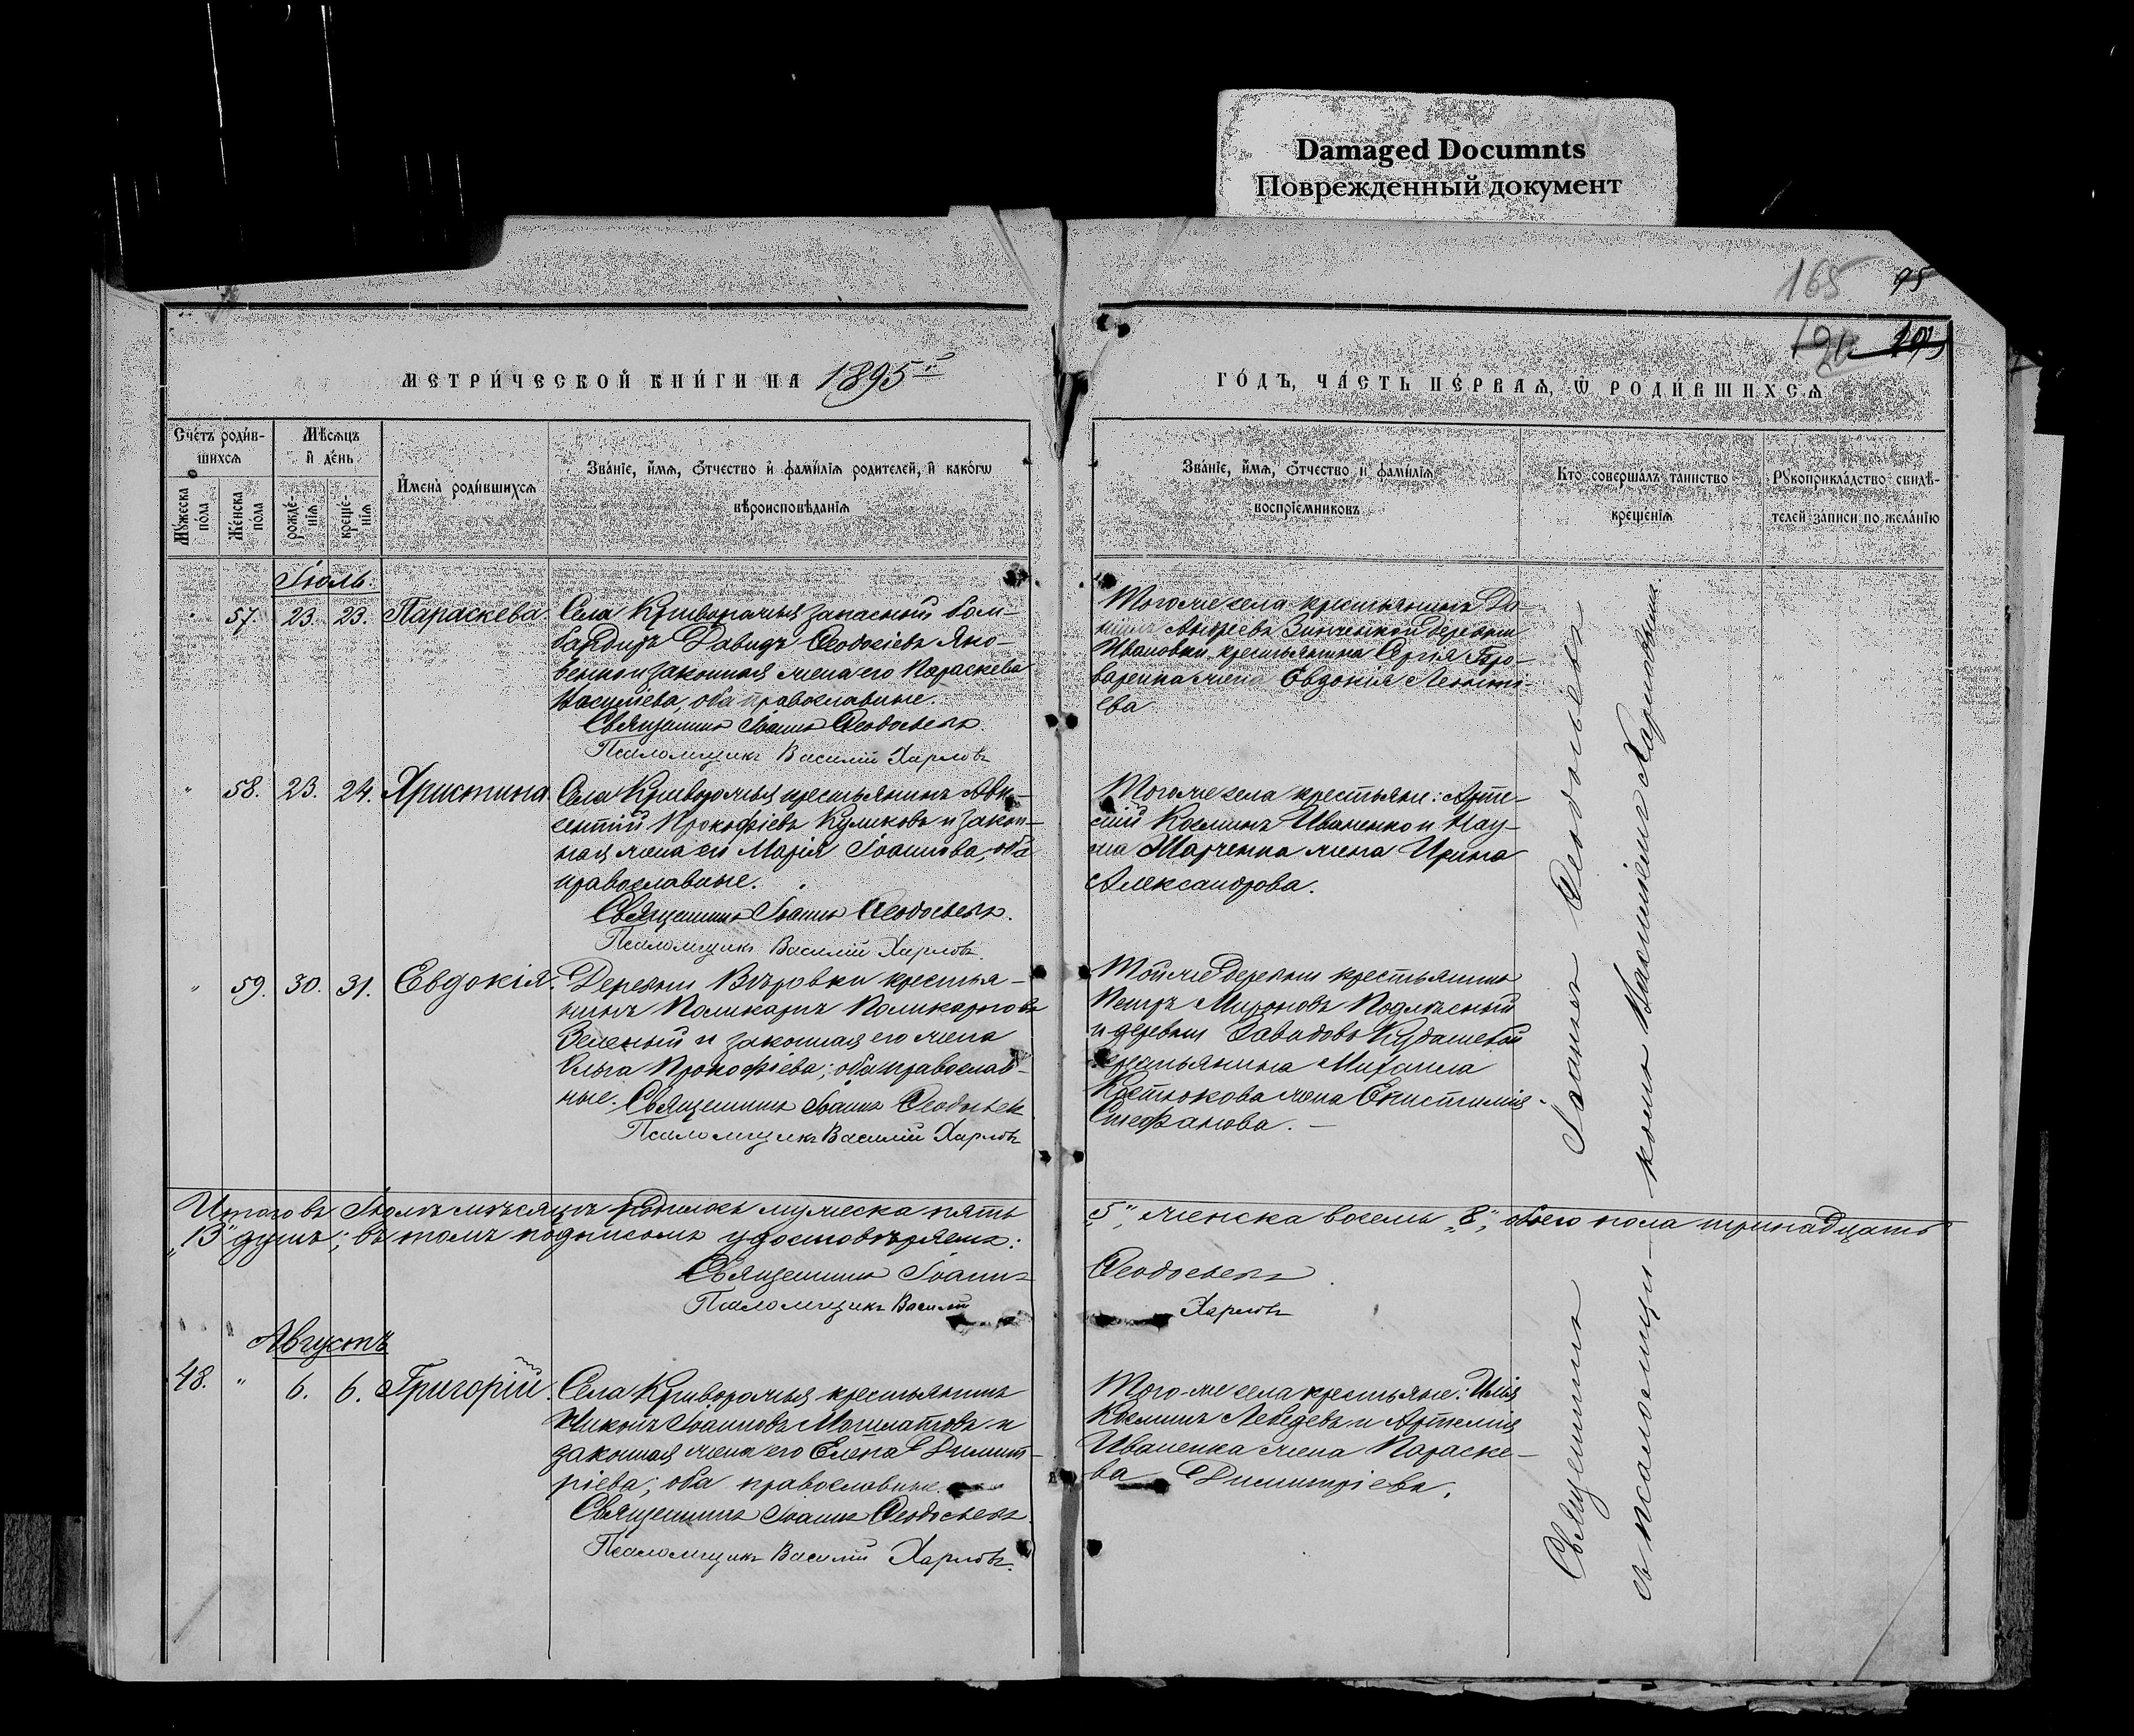 Damaged Documnts
Поврежденный документ
165 95
МЕТРИ́ЧЕСКОЙ КНИ́ГИ НА 1895й
ГО́ДЪ, ЧА́СТЬ ПЕ́РВАѦ, Ѡ РОДИ́ВШИХСѦ
Сче́тъ роди́в-
шихсѧ
Мѣ́сѧцъ
и҆ де́нь
Мꙋ́жеска по́ла
Же́нска по́ла
рожде́-
нїѧ
креще́-
нїѧ
И҆мена̀ роди́вшихсѧ
Зва́нїе, и҆́мѧ, ѻ҆́тчество и҆ фами́лїѧ роди́телей, и҆ како́гѡ
вѣроисповѣ́данїѧ
Зва́нїе, и҆́мѧ, ѻ҆́тчество и҆ фами́лїѧ
воспрїе́мниковъ
Кто̀ соверша́лъ та́инство
креще́нїѧ
Рꙋкоприкла́дство свидѣ́-
телей за́писи по жела́нїю
Іюль.
" 57. 23. 23. Параскева.
Села Криворожья запасный бом-
бардиръ Давидъ Ѳеодосіевъ Яко-
венко и законная жена его Параскева
оба православные.
Священникъ Іоаннъ Ѳеодосьевъ.
Псаломщикъ Василій Харловъ
Того-же села крестьянинъ
Андреевъ Зинченко и деревни
Ивановки крестьянина
жена Евдокія Леонті-
ева
" 58. 23. 24. Христина.
Села Криворожья крестьянинъ Авк-
сентій Прокофіевъ Куликовъ и закон-
ная жена его Марія Іоаннова, оба
православные.
Священникъ Іоаннъ Ѳеодосьевъ.
Псаломщикъ Василій Харловъ.
Того-же села крестьяне: Арте-
мій Косминъ Иваненко и Нау-
ма Шарченка жена Ирина
Александрова.
" 59. 30. 31. Евдокія.
Деревни Вѣровки крестья-
нинъ Поликарпъ Поликарповъ
Зеленый и законная его жена
Ольга Прокофіева; оба православ-
ные. Священникъ Іоаннъ Ѳеодосьевъ
Псаломщикъ Василій Харловъ
Той-же деревни крестьянинъ
Петръ Мироновъ Подлѣсный
и деревни Давидовъ Кудашевой
крестьянина Михаила
Костюкова жена Епистимія
Стефанова. –
Итого въ Іюлѣ мѣсяцѣ родилось мужеска пять „5", женска восемь „8", обоего пола тринадцать
„13" душъ; въ томъ подписомъ удостовѣряемъ:
Священникъ Іоаннъ Ѳеодосьевъ.
Псаломщикъ Василій Харловъ
Августъ
48. " 6. 6. Григорій.
Села Криворожья крестьянинъ
Никонъ Іоанновъ и
законная жена его Елена Димит-
ріева; оба православные.
Священникъ Іоаннъ Ѳеодосьевъ.
Псаломщикъ Василій Харловъ.
Того-же села крестьяне: Илія
Косминъ Лебедевъ и Артемія
Иваненка жена Параске-
ва Димитріева.
Священникъ Іоаннъ Ѳеодосьевъ
съ псаломщикомъ Василіемъ Харловымъ.